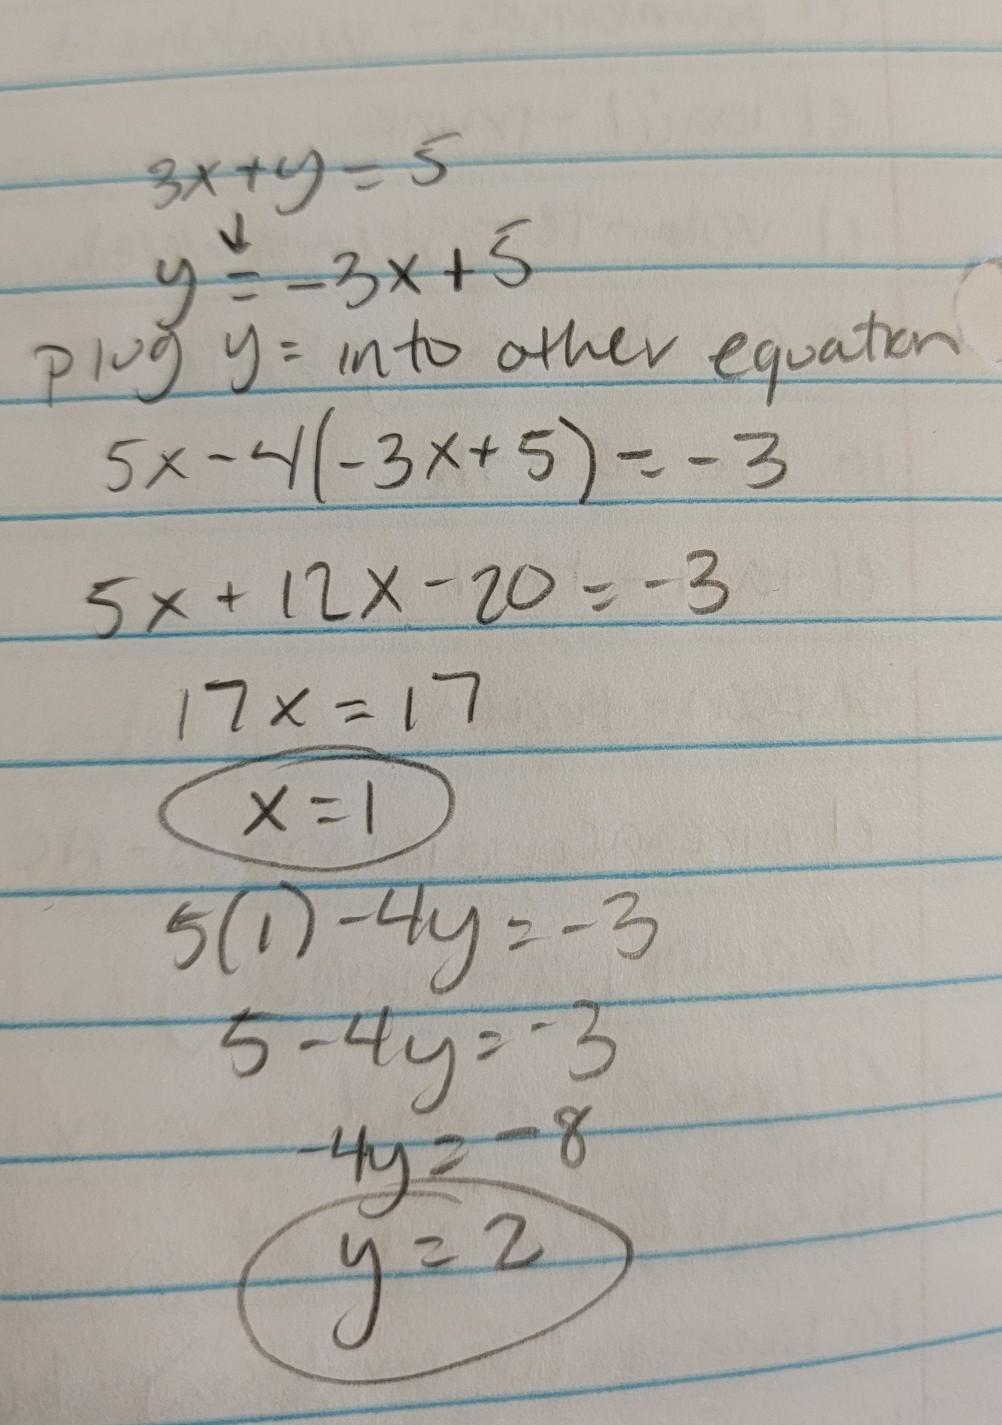 3x+y=5
↓
y = -3x+5
plug y= into other equation
5x-4(-3x+5)=-3
5x+12x-20=-3
17x=17
x=1
5(1)-4y=-3
5-4y=-3
-4y=-8
y=2